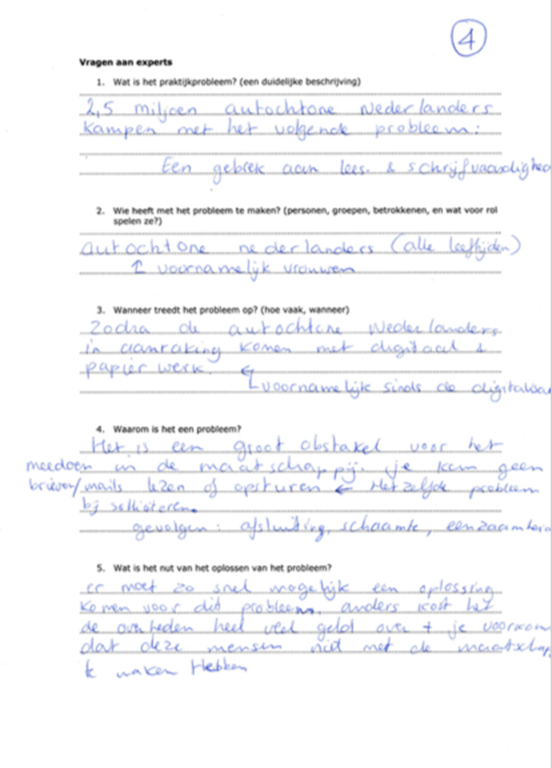 4
Vragen aan experts
1. Wat is het praktijkprobleem? (een duidelijke beschrijving)
2,5 miljoen autochtone Nederlanders
kampen met het volgende probleem:
Een gebrek aan lees- & schrijfvaardighe
2. Wie heeft met het probleem te maken? (personen, groepen, betrokkenen, en wat voor rol
spelen ze?)
autochtone nederlanders (alle leeftijden)
↑ voornamelijk vrouwen
3. Wanneer treedt het probleem op? (hoe vaak, wanneer)
Zodra de autochtone Nederlanders
in aanraking komen met digitaal &
papier werk.
voornamelijk sinds de
4. Waarom is het een probleem?
Het is een groot obstakel voor het
meedoen in de maatschappij. je kan geen
brieven/mails lezen of opsturen ← Hetzelfde probleem
bij solliciteren.
gevolgen: afsluiting, schaamte,
5. Wat is het nut van het oplossen van het probleem?
er moet zo snel mogelijk een oplossing
komen voor dit probleem, anders kost het
de overheden heel veel geld over + je
dat deze mensen niet met de maatschap
te maken Hebben